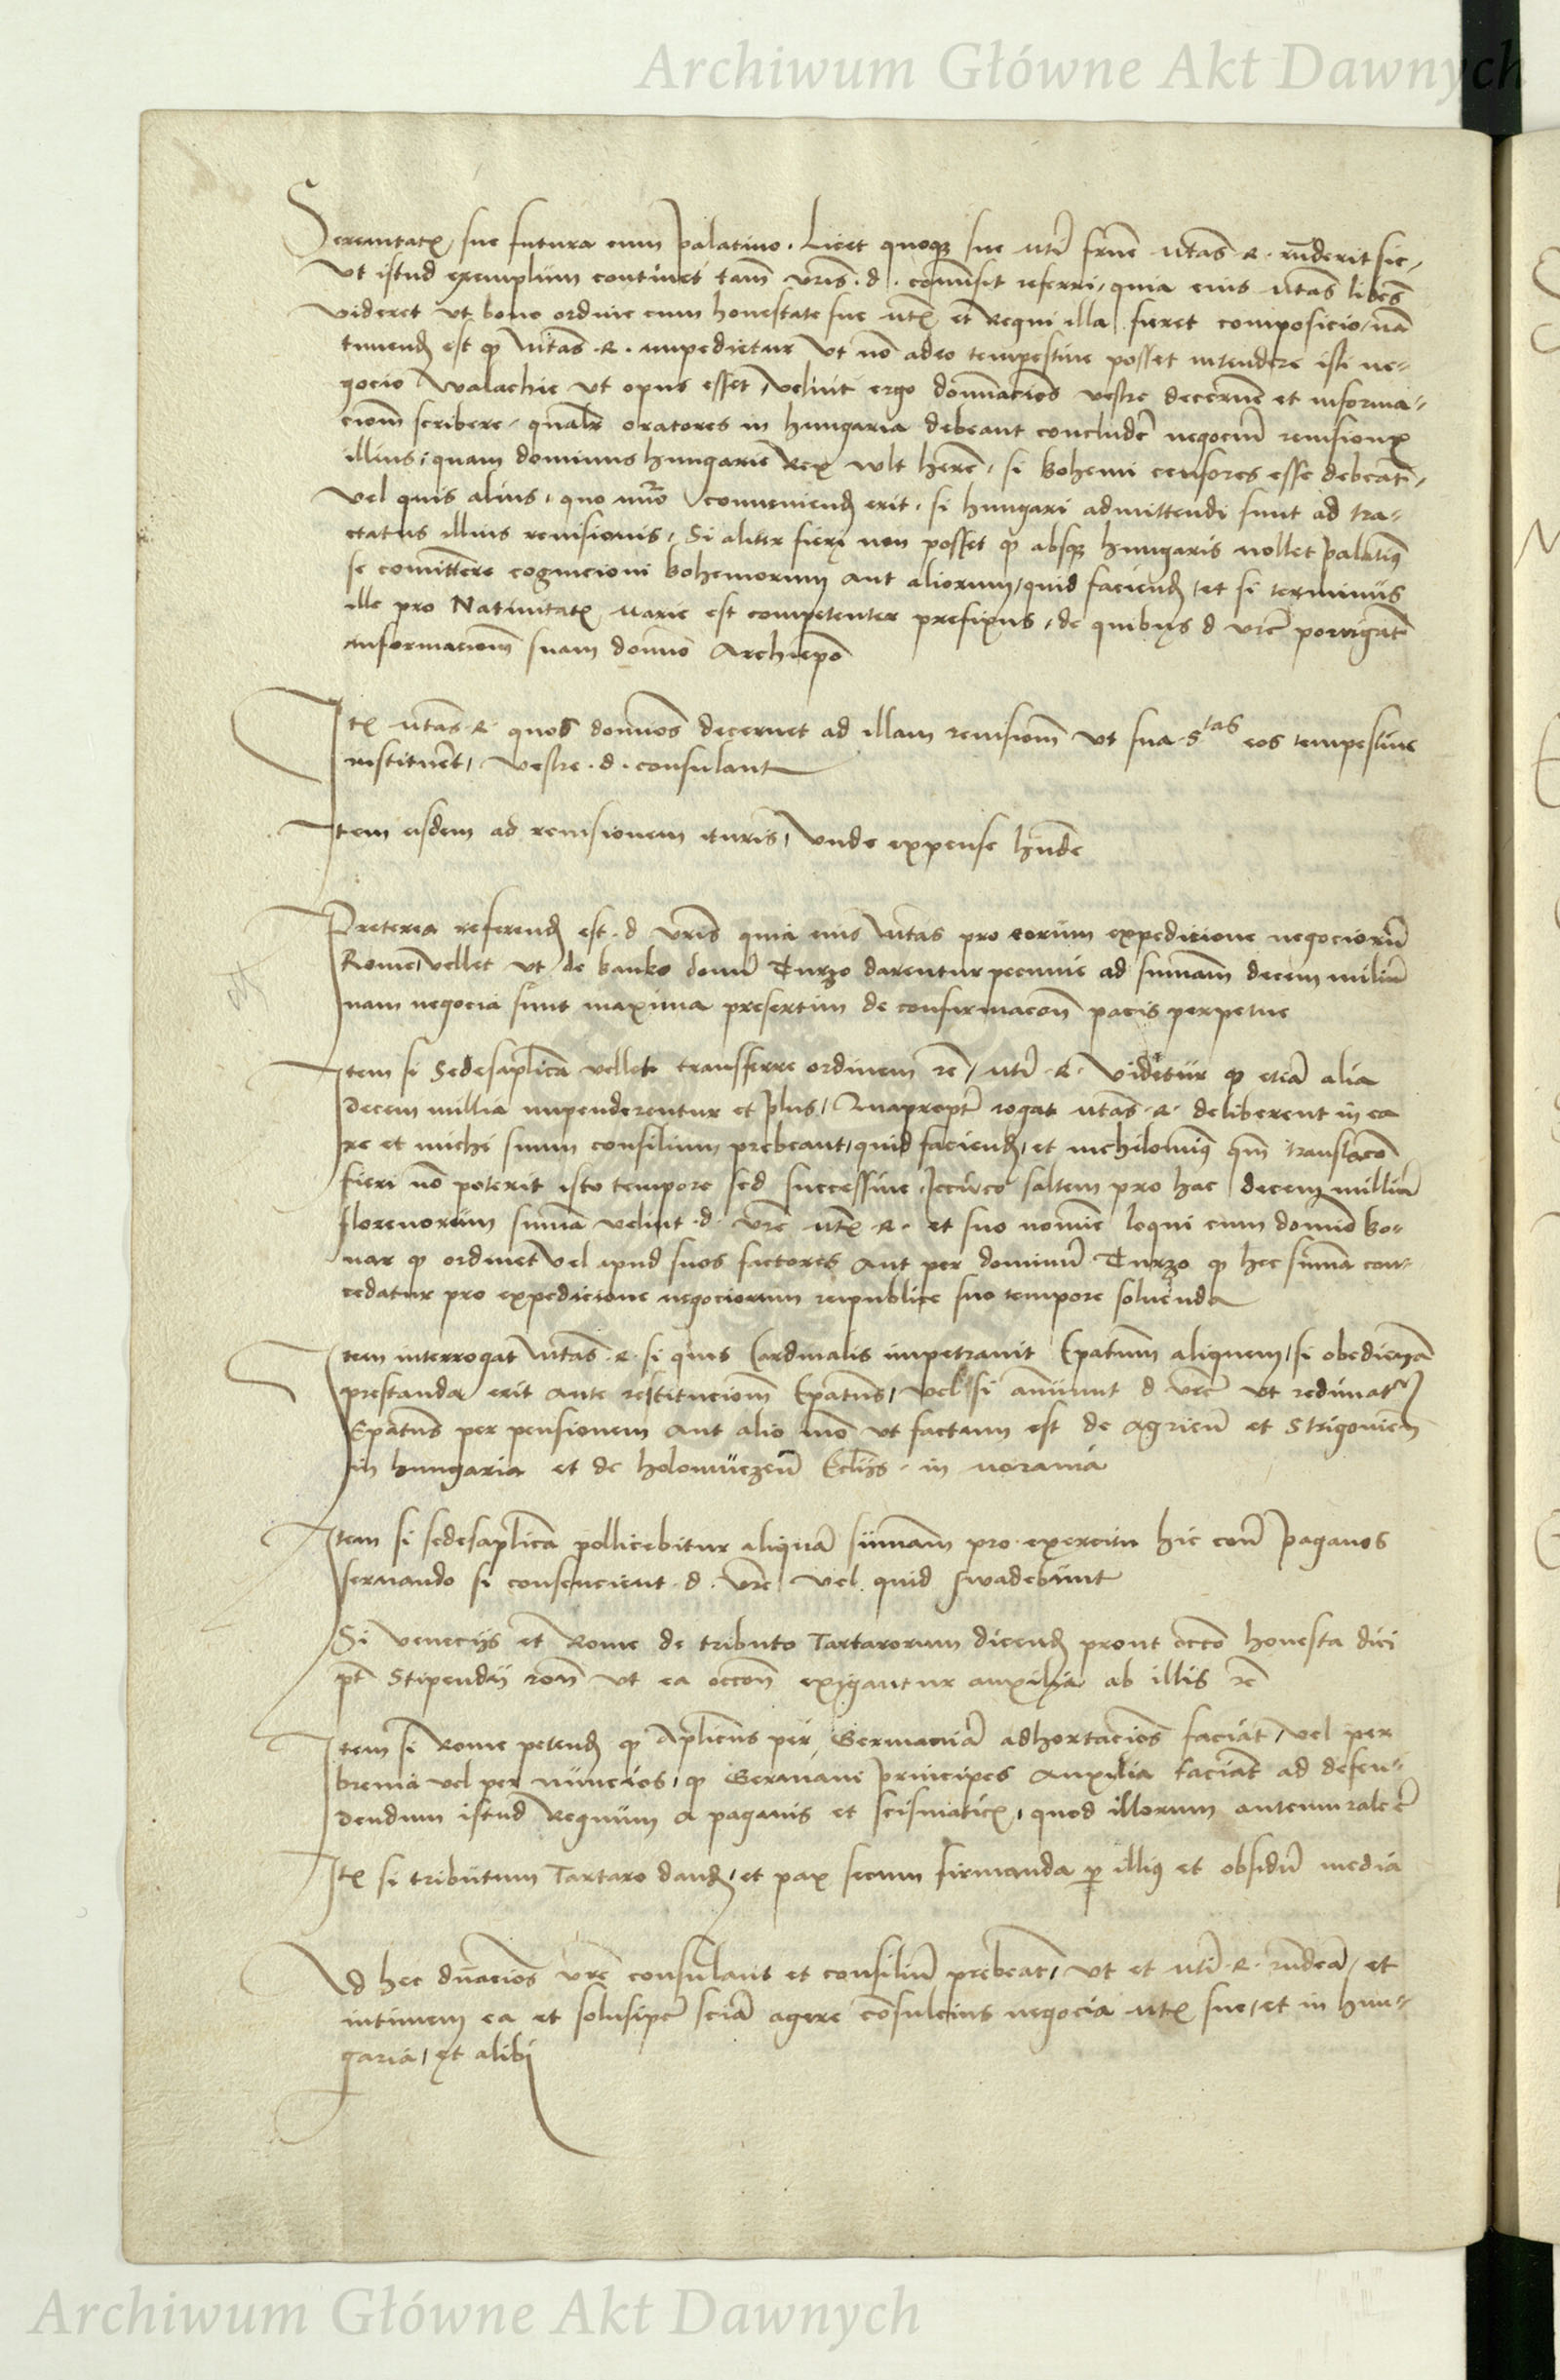 Archiwum Główne Akt Dawnych
Serenitatꝭ sue futura cum palatino. Licet quoqꝫ sue mti frūe mtas R. rn̄derit sic,
Ut istud exemplum continet tam̄ vr̄is. d. com̄isit referri, quia eius mtas libēs
videret ut bono ordine cum honestate sue mtꝭ et Regni illa fieret composicio, nā
timend est qꝫ mtas. R. impedietur ut nō adeo tempestiue posset intendere isti ne-
gocio Walachie ut opus esset, velint ergo dominacōēs vestre decernē et informa-
cionē scribere, qualr oratores in hungaria debeant concludē negociū reuisionꝭ
illius, quam dominus hungarie Rex vlt hērē, si bohemi censores esse debeāt,
vel quis alius, quo mō conueniend erit. si hungari admittendi sunt ad tra-
ctatus illius reuisionis, Si aliter fieri non posset qꝫ absqꝫ hungaris nollet palatinꝰ
se comittere cognicioni bohemorum aut aliorum, quid faciend, et si terminus
ille pro Natiuitatꝭ marie est competenter prefixus, de quibus d vrē porrigāt
informacionē suam domino Archiepō
Itꝫ mtas. R. quos dominos decernet ad illam reuisionē ut sua. S tas eos tempestiue
instituēt, vestre. d. consulant
Item eisdem ad reuisionem ituris, vnde expense hn̄de
Preterea referend est. d vr̄is quia eius mtas pro eorum expedicione negociorū
Rome, vellet ut de banko domī Turzo darentur pecunie ad summam decem miliū
nam negocia sunt maxima presertim de confirmacōn pacis perpetue
Item si Sedesaplica vellet transferre ordinem rē, mti. R. videtur qꝫ etiā alia
decem millia impenderentur et plus, Quapropt rogat mtas. R. deliberent in ea
re et michi suum consilium prebeant, quid faciend, et nichilominꝰ qm̄ translacō
fieri nō poterit isto tempore sed successiue, secūco saltem pro hac decem milliū
florenorum summa velint. d. vrē mtꝭ. R. et suo nomīe loqui cum domino bo-
nar qꝫ ordinet vel apud suos factores aut per dominū Turzo qꝫ hec summa con-
cedatur pro expedicione negociorum reipublice suo tempore soluenda
Item interrogat mtas. R. si quis Cardinalis impetrauit Epatum aliquem, si obediencia
prestanda erit ante restitucionē Epatus, vel si annuūt d vrē ut redimatr
Epatus per pensionem aut alio mō ut factum est de agrieñ et Strigonieñ
in hungaria et de holomuczeñ Ecliis. in morauia
Item si sedesaplica pollicebitur aliquā summam pro exercitu hic contr paganos
seruando si consencient. d. vrē vel quid swadebunt
Si veneciis et Rome de tributo Tartarorum dicend prout occō honesta dici
pt Stipendii rōn ut ea occōn exigantur auxilia ab illis rē
Item si Rome petend qꝫ Aplicus per Germaniā adhortacōēs faciat, vel per
breuia vel per nuncios, qꝫ Germani principes auxilia faciāt ad defen-
dendum istud Regnum a paganis et scismaticꝭ, quod illorum antemurale ē
Itꝫ si tributum Tartaro dand, et pax secum firmanda ꝑ illius et obsidū media
Ad hec dn̄acōēs vrē consulant et consiliū prebeāt, ut et mti. R. rn̄deā, et
intimem ea et solusipe sciā agere consulcius negocia mtꝭ sue, et in hun-
garia, et alibi
Archiwum Główne Akt Dawnych